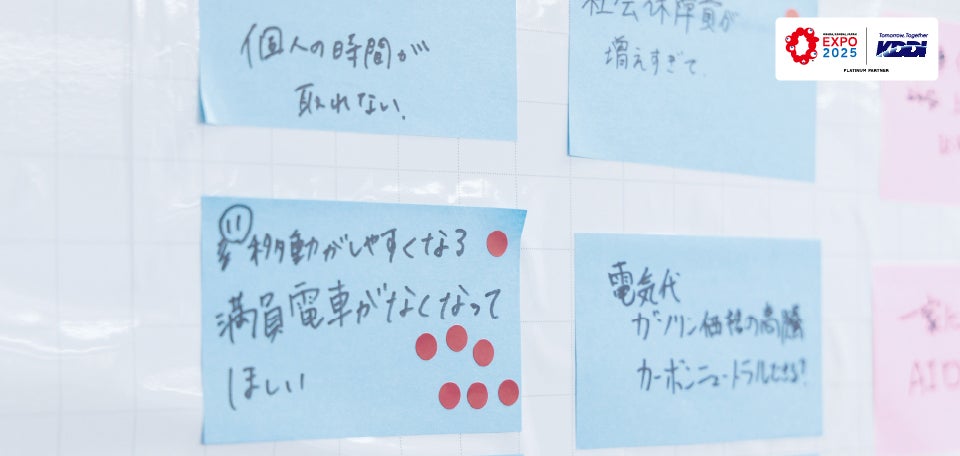 個人の時間が
取れない.
社会保障費が
増えすぎて.
OSAKA, KANSAI, JAPAN
EXPO
2025
Tomorrow, Together
KDDI
PLATINUM PARTNER
11
移動がしやすくなる
満員電車がなくなって
ほしい
電気代
ガソリン価格の高騰
カーボンニュートラルできる?
一家に
AIロ